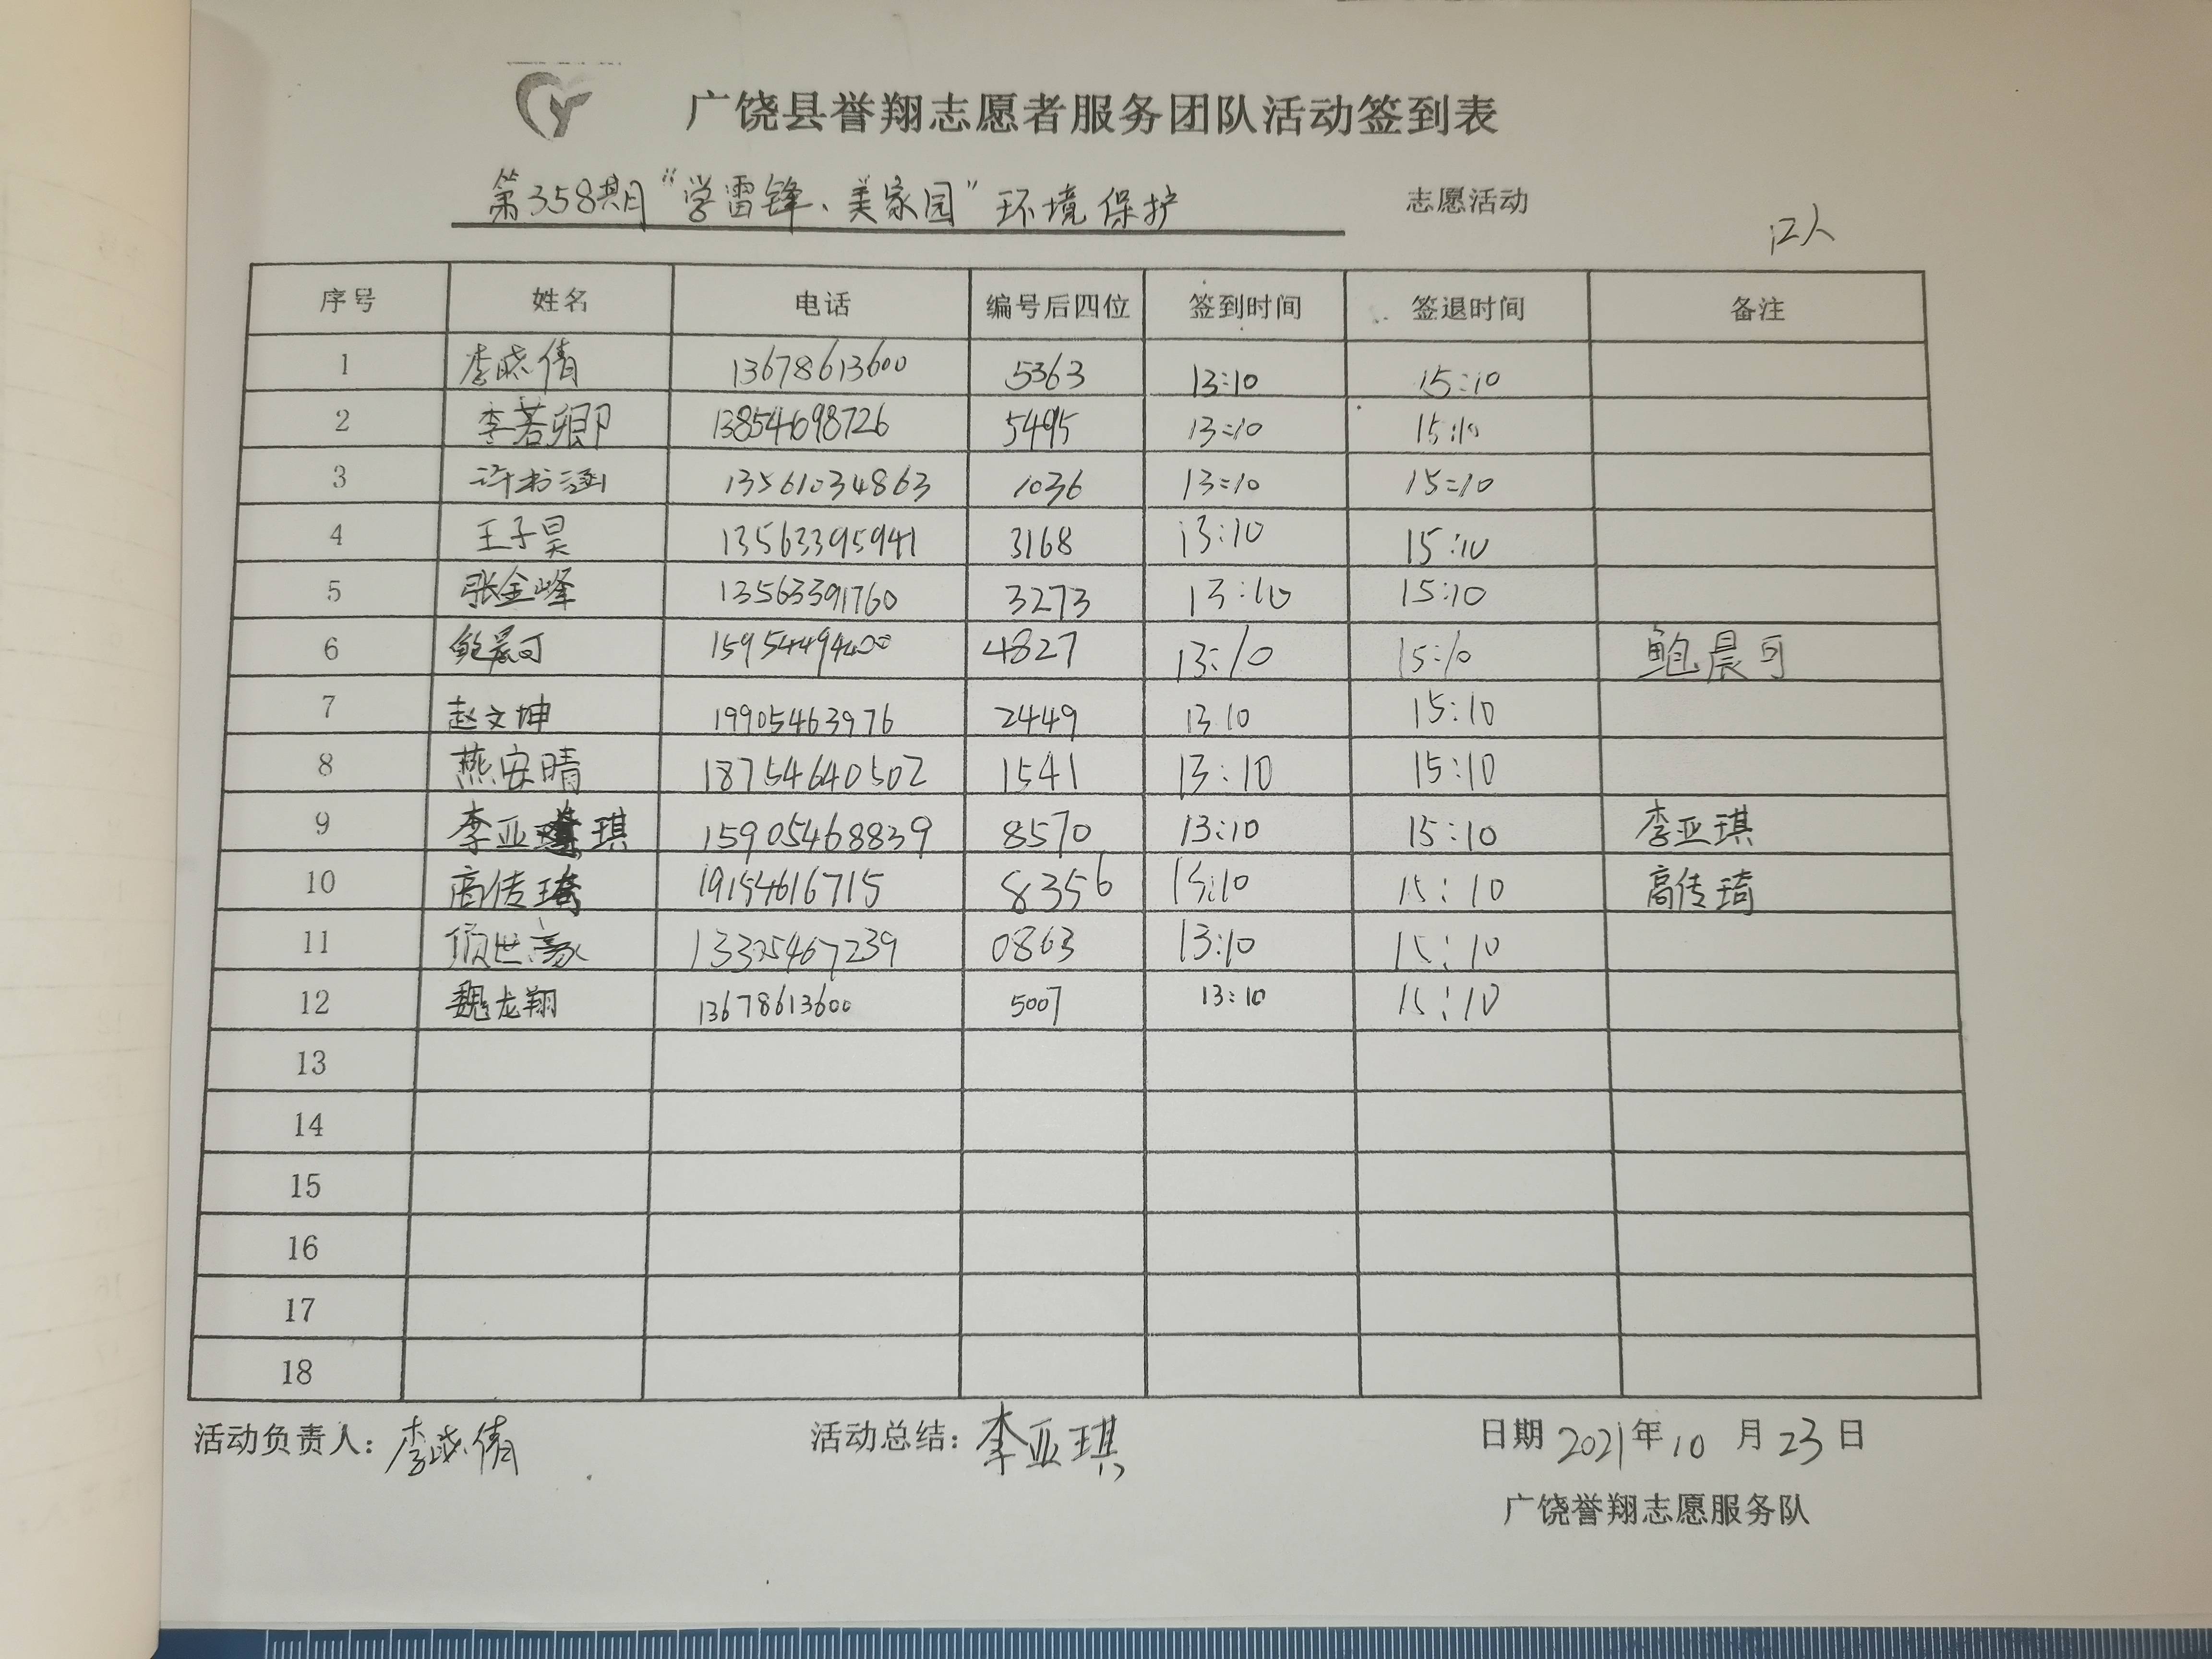 广饶县誉翔志愿者服务团队活动签到表
第358期“学雷锋、美家园”环境保护 志愿活动
12人
序号 姓名 电话 编号后四位 签到时间 签退时间 备注
1 李晓倩 13678613600 5363 13:10 15:10
2 李若卿 13854698726 5495 13:10 15:10
3 许书涵 13561034863 1036 13:10 15:10
4 王子昊 13563395941 3168 13:10 15:10
5 张金峰 13563391760 3273 13:10 15:10
6 鲍晨可 15954494400 4827 13:10 15:10 鲍晨可
7 赵文坤 19905463976 2449 13 10 15:10
8 燕安晴 18754640502 1541 13:10 15:10
9 李亚琪 15905468839 8570 13:10 15:10 李亚琪
10 高传琦 19154616715 8356 13:10 15:10 高传琦
11 世豪 13325467239 0863 13:10 15:10
12 魏龙翔 13678613600 5007 13:10 15:10
13
14
15
16
17
18
活动负责人：李晓倩 活动总结：李亚琪 日期 2021年10月23日
广饶誉翔志愿服务队